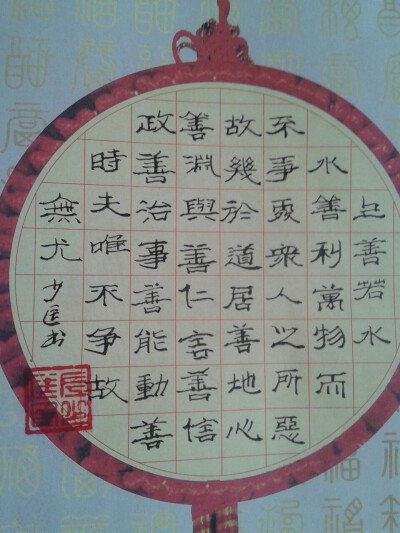 上善若水
水善利萬物而
不爭處衆人之所惡
故幾於道居善地心
善淵與善仁言善信
政善治事善能動善
時夫唯不争故
無尤
少匡书